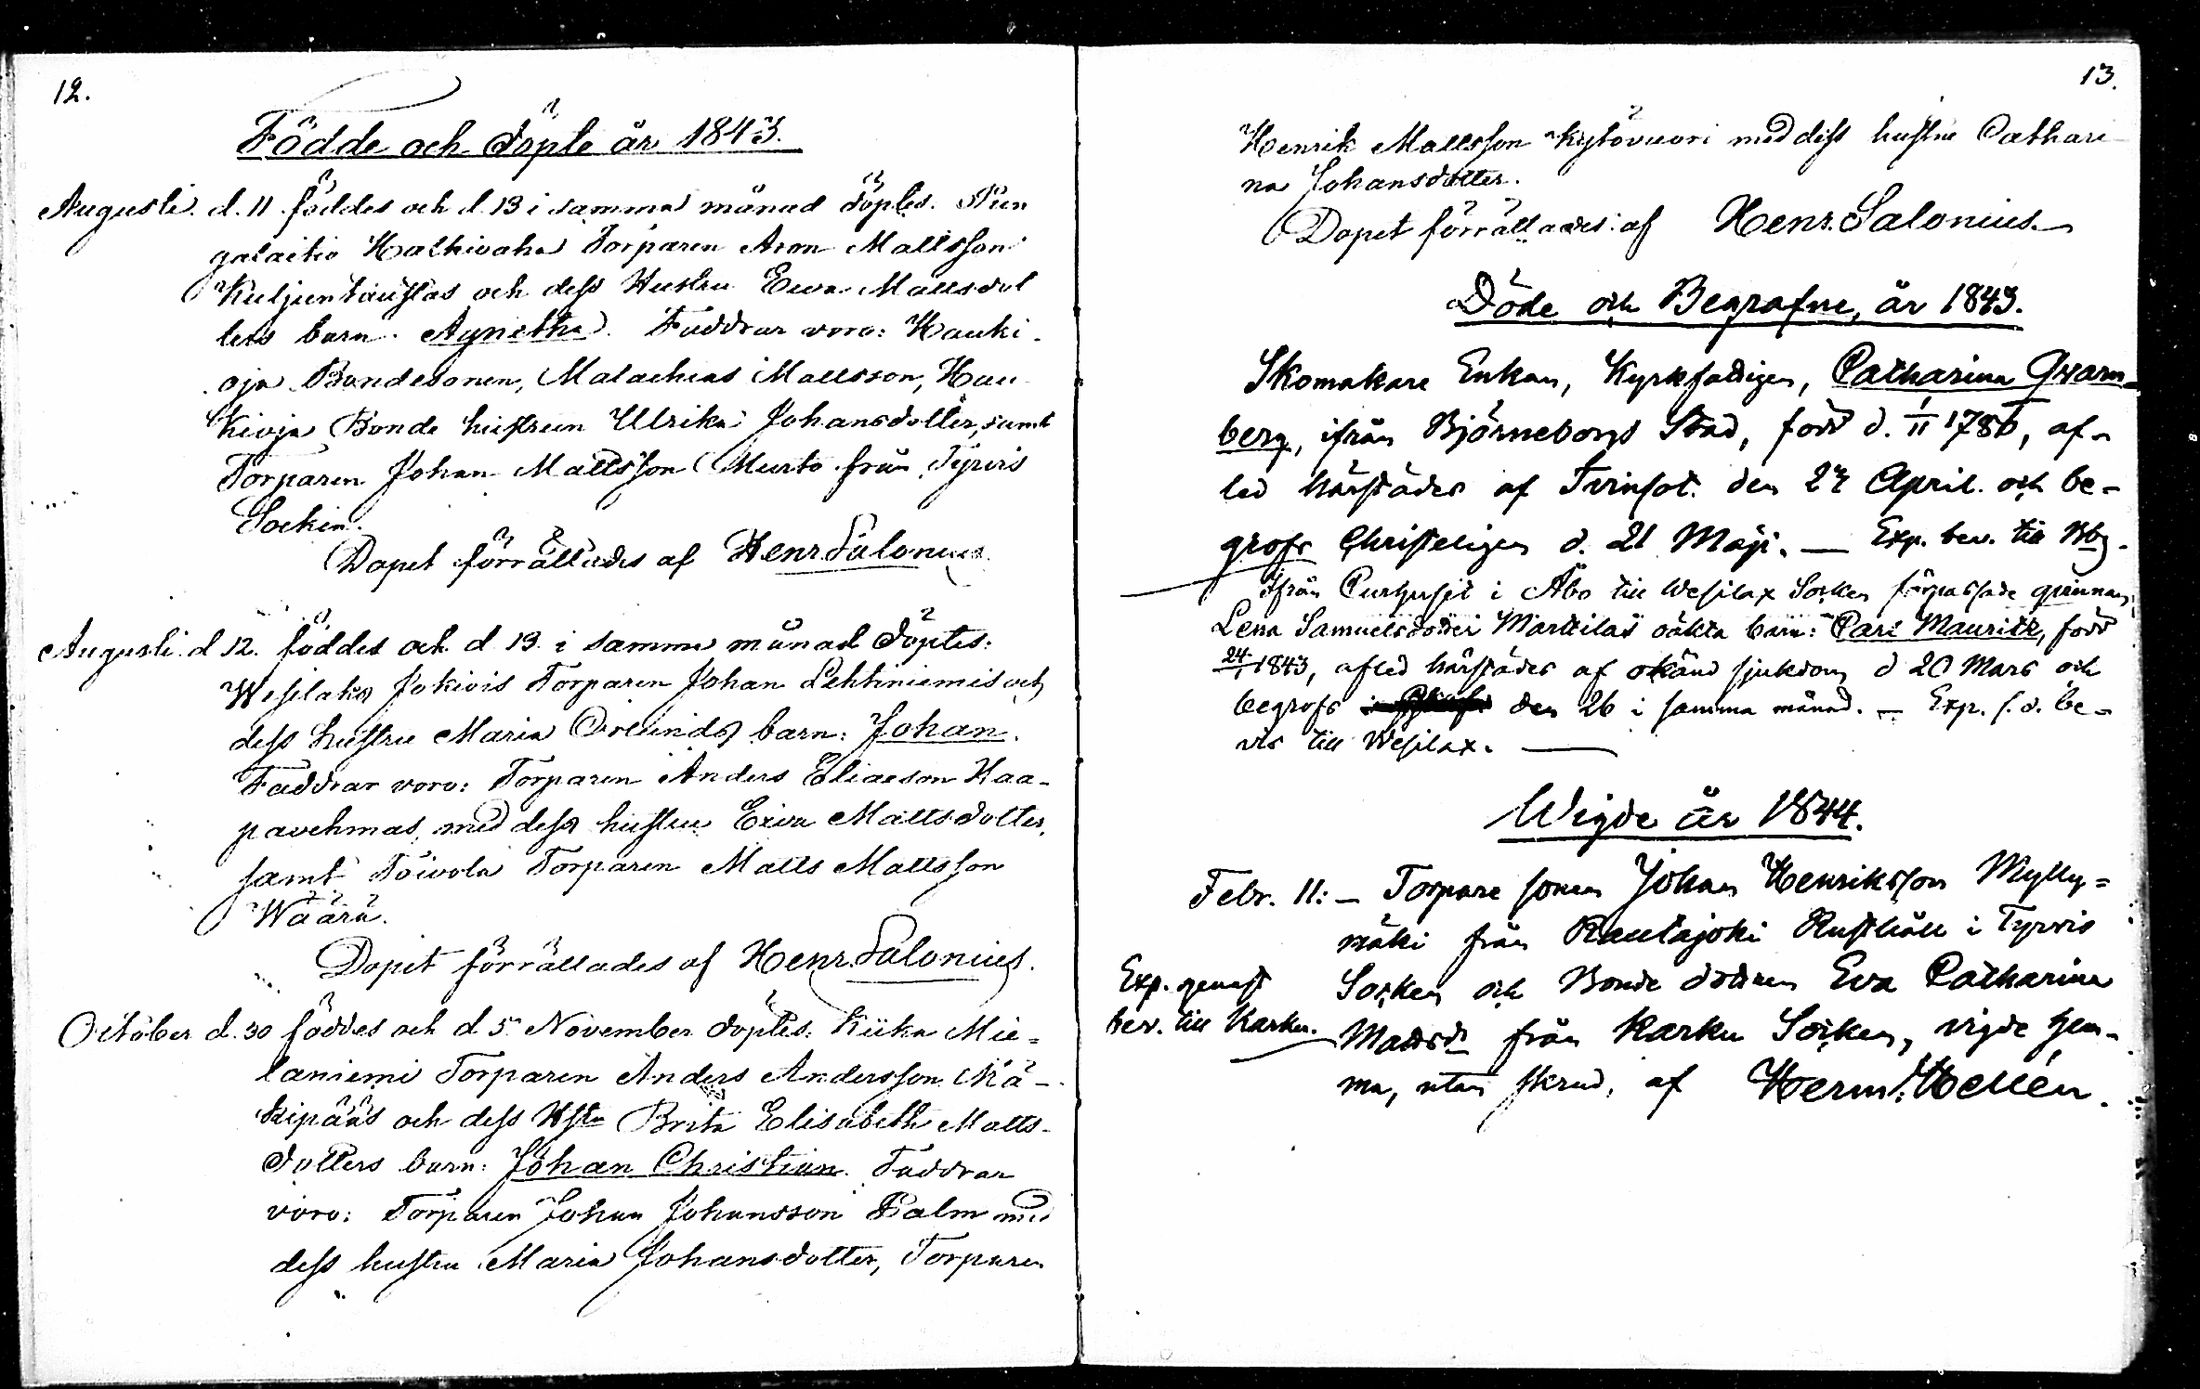 12.
Födde och döpte år 1843.
Augusti. d. 11 föddes och d. 13 i samma månad döptes. Pun
galaitio Halkivaha Torparen Aron Mattsson
Kuljuntaustas och dess Hustru Ewa Mattsdot
ters barn. Agnetha. Faddrar voro: Hauki-
oja Bondesonen, Malachias Mattsson, Hau
kioja Bonde hustrun Ulrika Johansdotter, samt
Torparen Johan Mattsson Murto från Tyrvis
Sockin.
Dopet förrättades af Henr. Salonius
Augusti. d 12. föddes och d 13. i samma månad döptes:
Wesilaks Jokivis Torparen Johan Lehtiniemis och
dess hustru Maria Orlunds barn: Johan.
Faddrar voro: Torparen Anders Eliasson Haa-
pavehmas, med dess hustru Ewa Mattsdotter,
samt Toivola Torparen Matts Mattsson
Wäärä.
Dopet förrättades af Henr. Salonius.
October d. 30 föddes och d 5 November döptes: Kiika Mie=
laniemi Torparen Anders Andersson Mä-
kipääs och dess Hstu Brita Elisabeth Matts-
dotters barn: Johan Christian. Faddrar
voro: Torparen Johan Johansson Palm med
dess hustru Maria Johansdotter, Torparen
13.
Henrik Mattsson Kystövuori med dess hustru Cathari
na Johansdotter.
Dopet förrättades: af Henr. Salonius.
Döde och Begrafne, år 1843.
Skomakare Enkan, Kyrkfattigen, Catharina Qvarn=
berg, ifrån Björneborgs Stad, född d. 1/11 1786, af-
led härstädes af Tvinsot. den 27 April. och be-
grofs Christeligen d. 21 Maji. — Exp. bev. till Bbg.
Ifrån Curhuset i Åbo till Wesilax Socken förpassade qvinnan
Lena Samuelsdotter Marttilas oäkta barn: Carl Mauritz, född
24/1 1843, afled härstädes af okänd sjukdom d 20 Mars och
begrofs den 26 i samma månad. — Exp. s. d. be-
vis till Wesilax.
Wigde år 1844.
Febr. 11: — Torpare sonen Johan Henriksson Mylly=
mäki från Rautajoki Rusthåll i Tyrvis
Exp. genast Socken och Bonde dottren Eva Catharina
bev. till Karku. Mattsdr från Karku Socken, vigde hem-
ma, utan skrud, af Herm. Hellén.